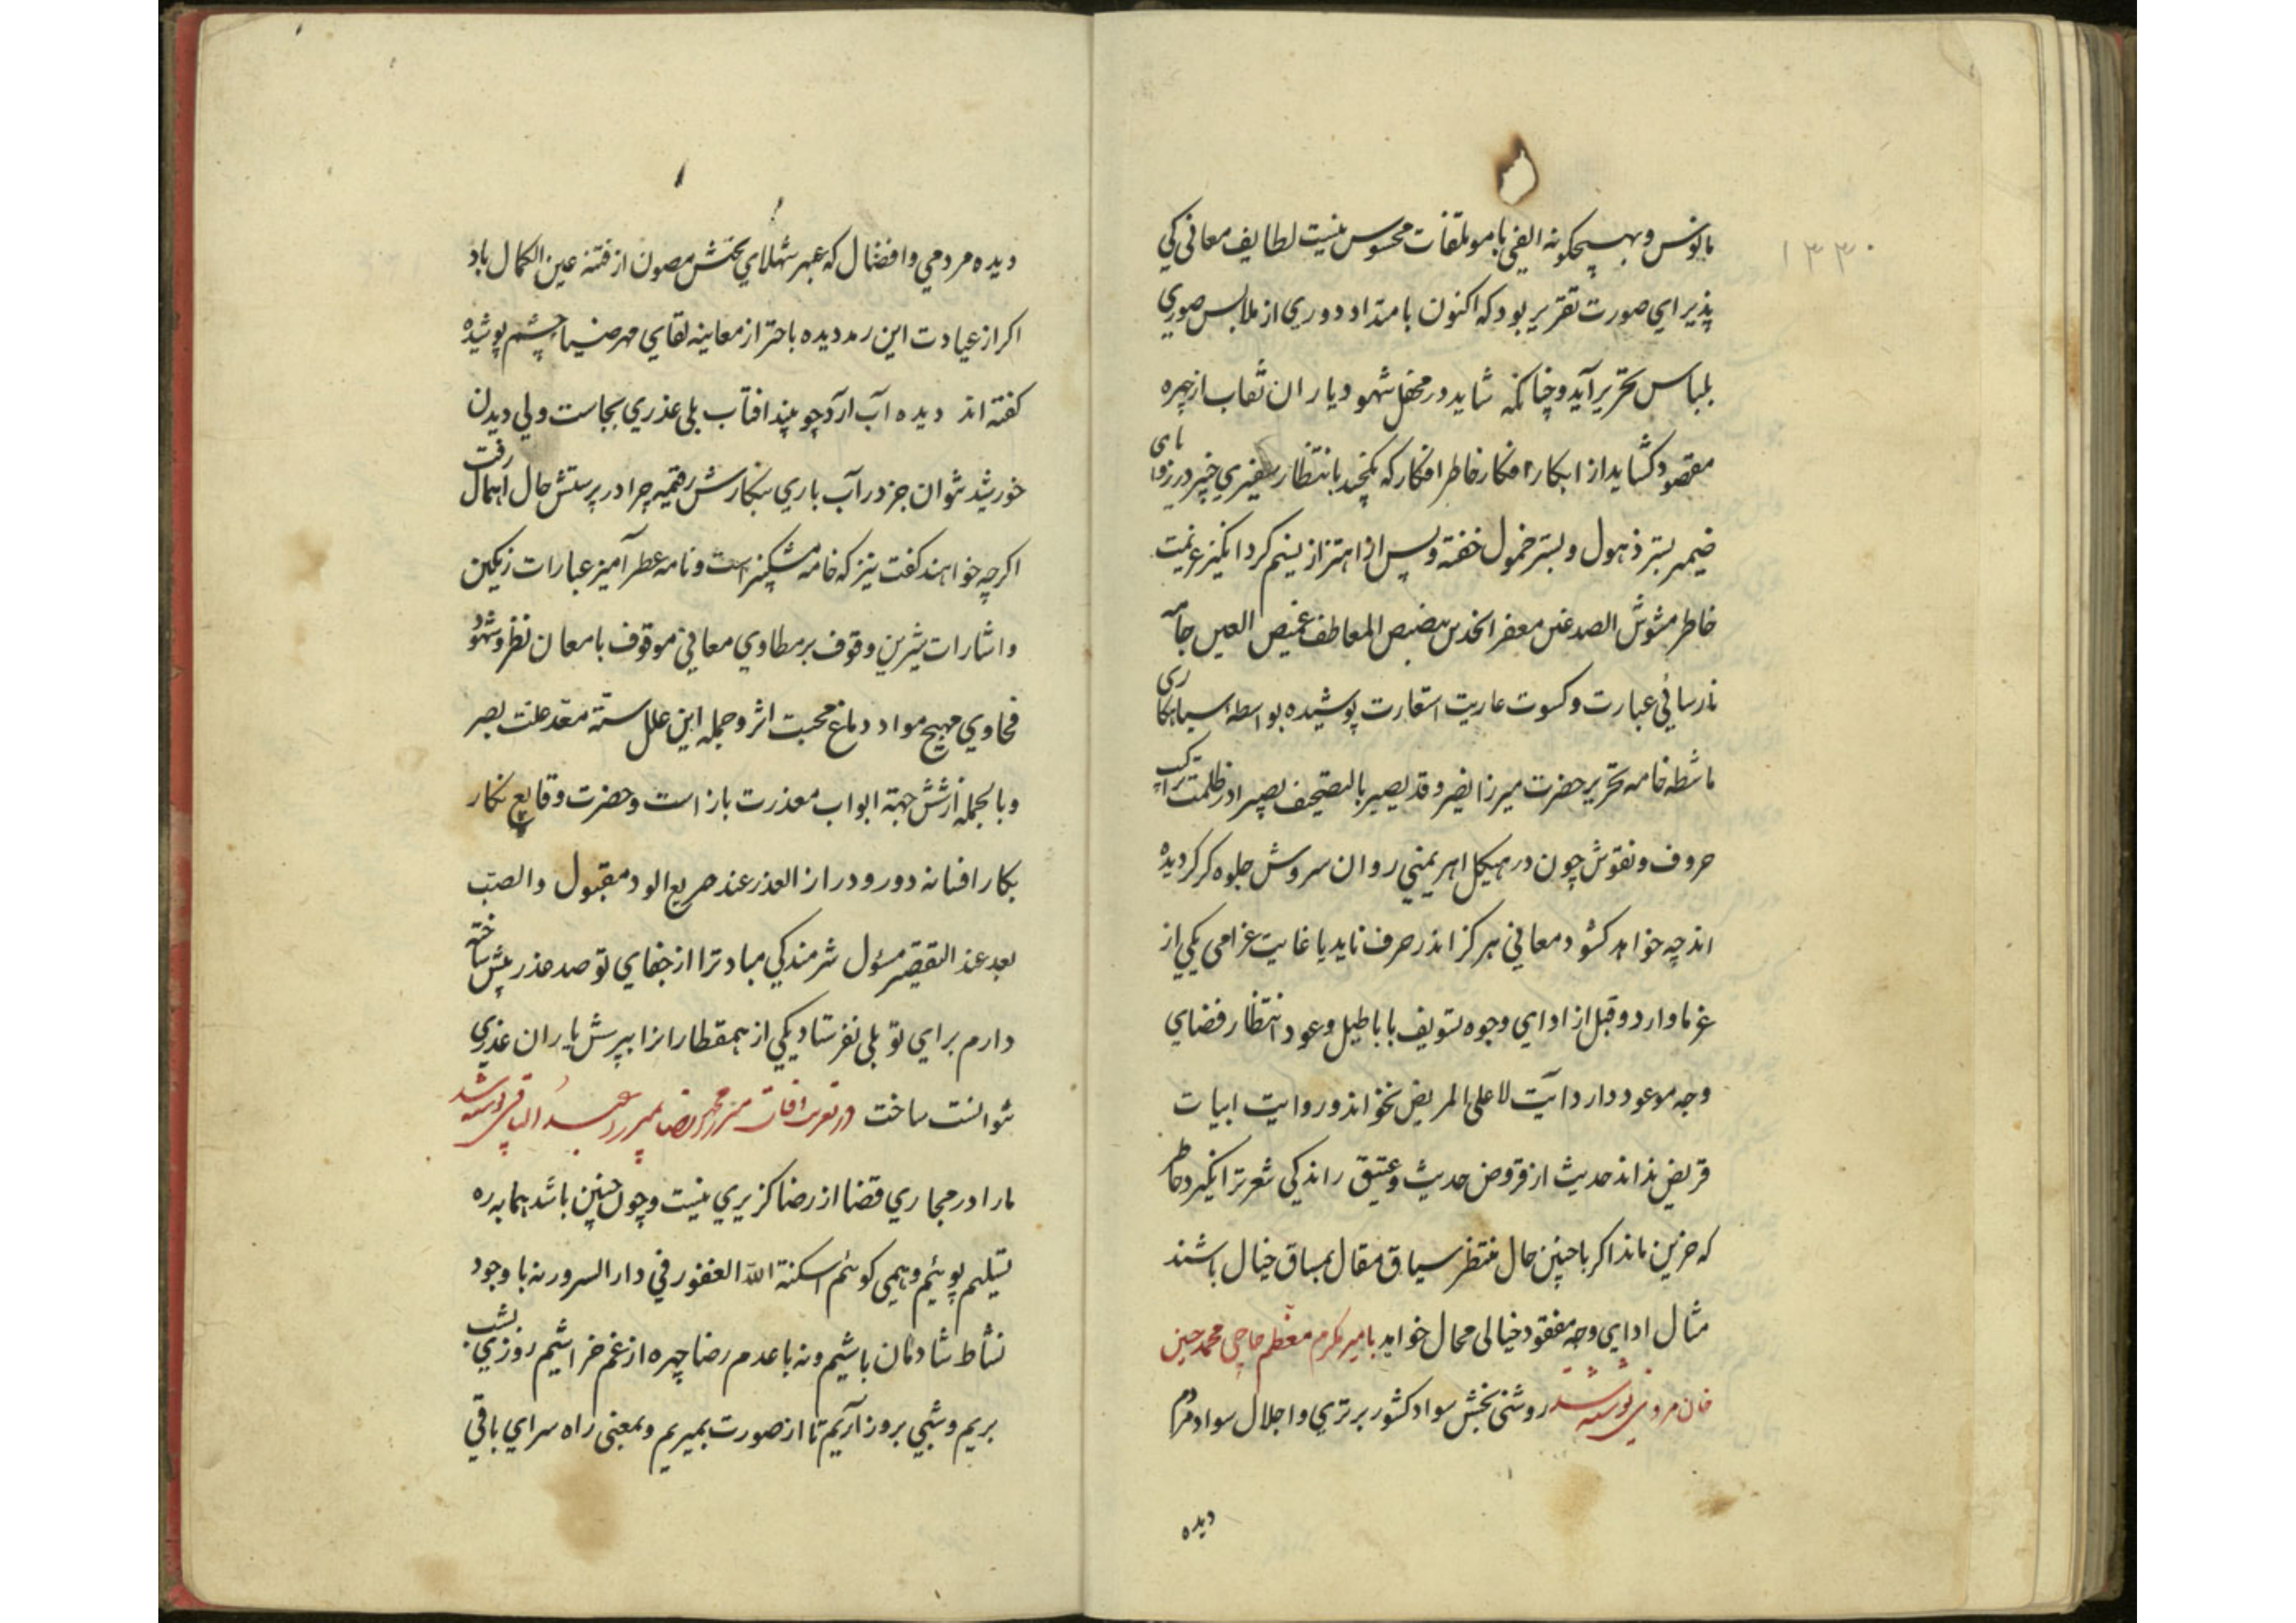 ۱۳۳۰
مانوس و بهیچگونه الفی با موتلفات محسوس نیست لطایف معانی کی
پذیرای صورت تقریر بود که اکنون بامتداد دوری از ملابس صوری
بلباس تحریر آید و چنانکه شاید در محفل شهود یاران نقاب از چهره
مقصود کشاید از ابکار افکار خاطر افکار که بانتظار سفیری خبیر در زوایای
ضمیر بستر ذهول و بستر خمول خفته و پس از اهتزاز نسیم کرد انگیز عزیمت
خاطر مشوش الصدغین معفر الخدین المعاطف العین جامه
نارسائی عبارت و کسوت عاریت استعارت پوشیده بواسطه سیاهکاری
ماشطه خامه تحریر حضرت میرزا نصیر و قد یصیر بالتصحیف بصیرا در ظلمت تراکیب
حروف و نقوش چون در هیکل اهریمنی روان سروش جلوه کر کردیده
اند چه خواهد کشود معانی هرکز اندر حرف ناید با غایت غرامی یکی از
غرما وارد و قبل از ادای وجوه تسویف باباطیل وعود انتظار فضای
وجه موعود دارد آیت لا علی المریض نخواند و روایت ابیات
قریض نداند حدیث از قروض حدیث و عتیق راند کی شعر تر انگیزد خاطر
که حزین ماند اکر با چنین حال منتظر سیاق مقال بمساق خیال باشند
مثال ادای وجه مفقود خیالی محال خواهد بامیر مکرم معظم حاجی محمد حسین
خان مروزی نوشته شد روشنی بخش سواد کشور برتری و اجلال سواد مردم
دیده
دیده مردمی و افضال که عبهر شهلای بختش مصون از فتنه عین الکمال باد
اکر از عیادت این رمد دیده باحتراز معاینه لقای مهر ضیا چشم پوشیده
کفته اند دیده آب آرد چو بیند افتاب بلی عذری بجاست ولی دیدن
خورشید نتوان جز در آب باری بنکارش رقیمه چرا در پرسش حال اهمال رفت
اکرچه خواهند کفت نیز که خامه مشکبیز است و نامه عطر آمیز عبارات رنکین
و اشارات شیرین وقوف بر مطاوی معانی موقوف بامعان نظر و شهود
فحاوی مهیج مواد دماغ محبت اثر و جمله این علل سته معد علت بصر
و بالجمله از شش جهة ابواب معذرت باز است و حضرت وقایع نکار
بکار افسانه دور و دراز العذر عند صریع الود مقبول والصب
بعد عند التقصیر مسؤل شرمندکی مباد ترا از جفای تو صد عذر پیش ساخته
دارم برای تو بلی نفرستاد یکی از همقطاران را بپرسش یاران عذری
نتوانست ساخت در تعزیت وفات میر محمد رضا بمیرزا عبد الباقی نوشته شد
ما را در مجاری قضا از رضا کزیری نیست و چون چنین باشد همان به ره
تسلیم پوئیم و همی کوئیم اسکنه الله الغفور فی دار السرور نه با وجود
نشاط شادمان باشیم و نه با عدم رضا چهره از غم خراشیم روزی بشب
بریم و شبی بروز آریم تا از صورت بمیریم و بمعنی راه سرای باقی